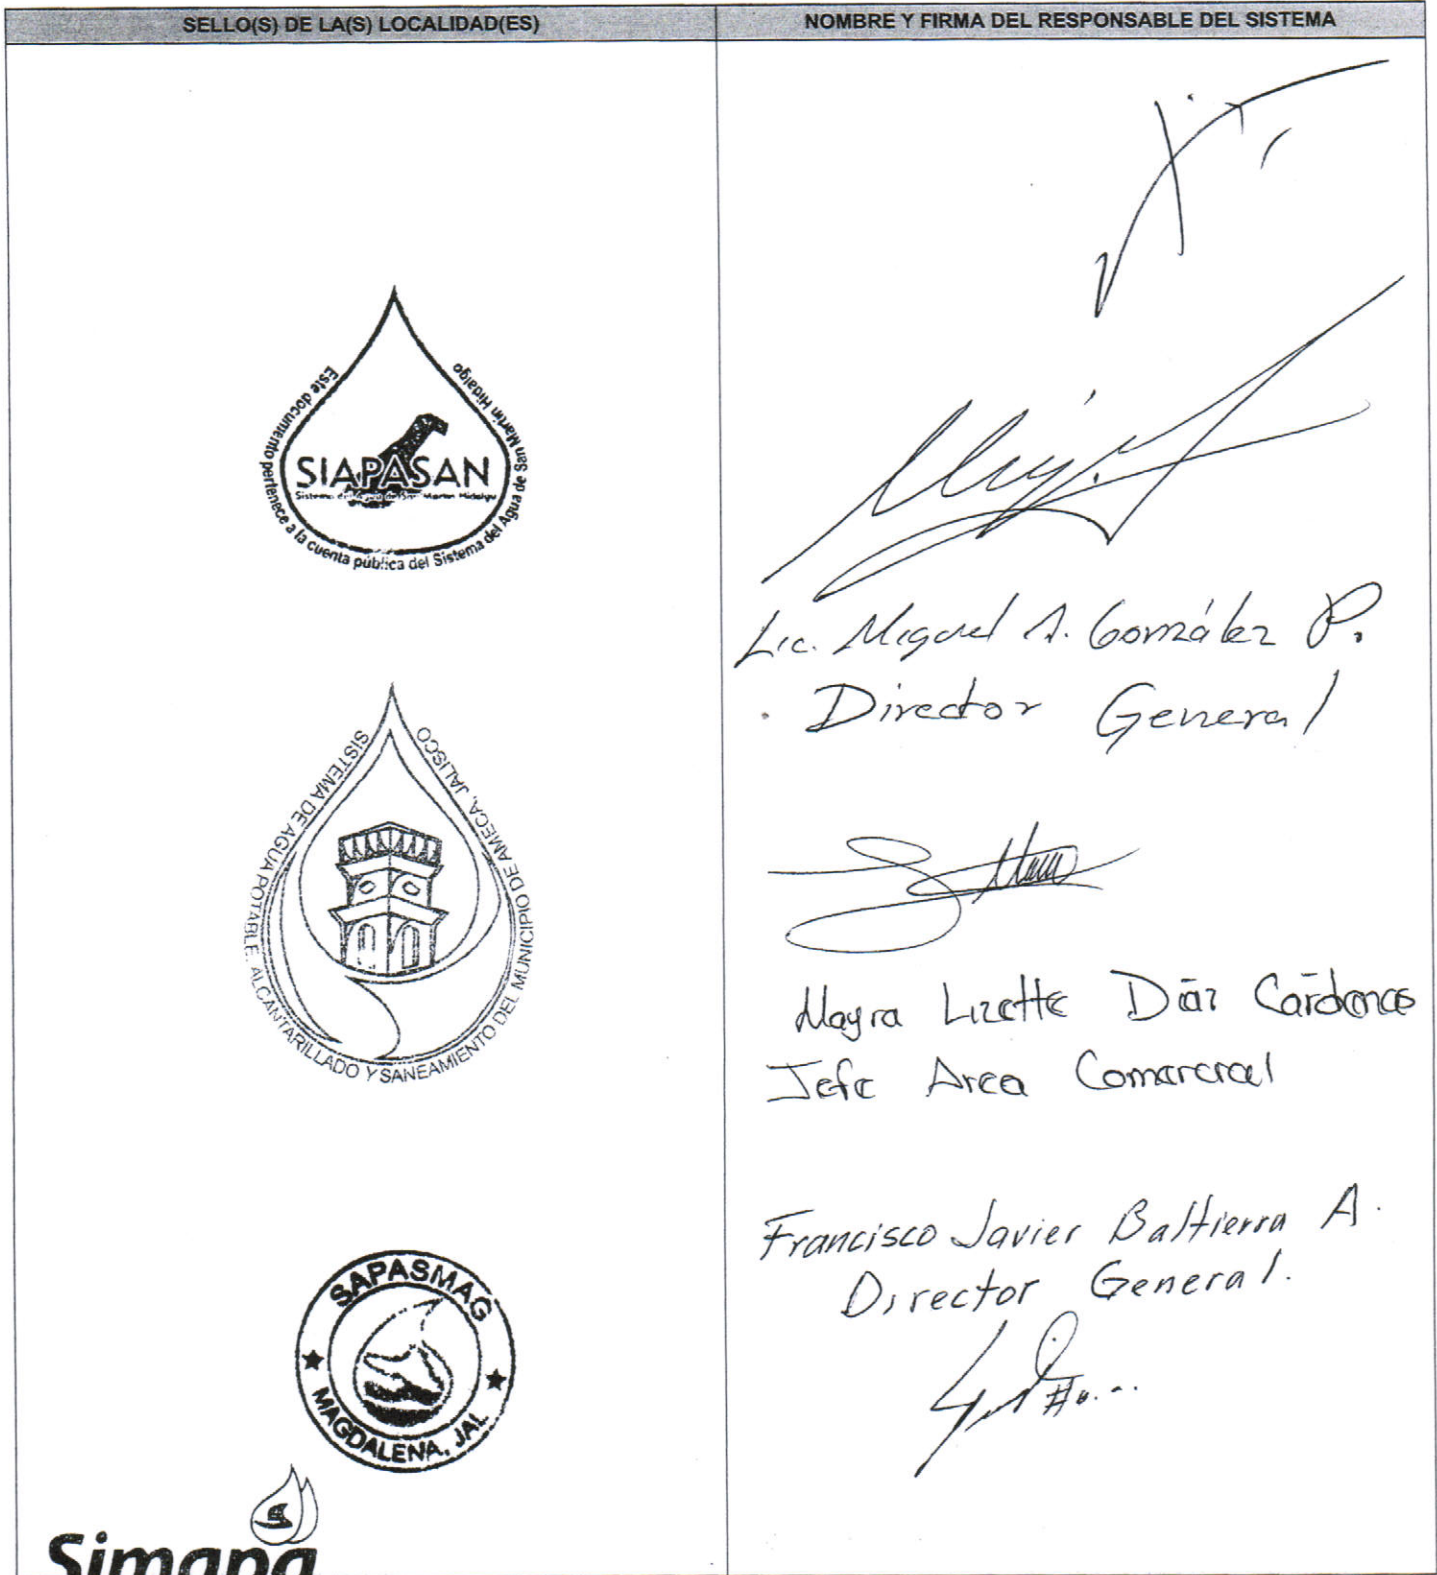 SELLO(S) DE LA(S) LOCALIDAD(ES)
NOMBRE Y FIRMA DEL RESPONSABLE DEL SISTEMA
Este documento pertenece a la cuenta pública del Sistema del Agua de San Martín Hidalgo
SIAPASAN
Sistema del Agua de San Martín Hidalgo
Lic. Miguel A. González P.
Director General
SISTEMA DE AGUA POTABLE, ALCANTARILLADO Y SANEAMIENTO DEL MUNICIPIO DE AMECA, JALISCO
Mayra Lizette Díaz Cárdenas
Jefe Area Comercial
Francisco Javier Baltierra A.
Director General.
SAPASMAG
MAGDALENA, JAL
Simapa